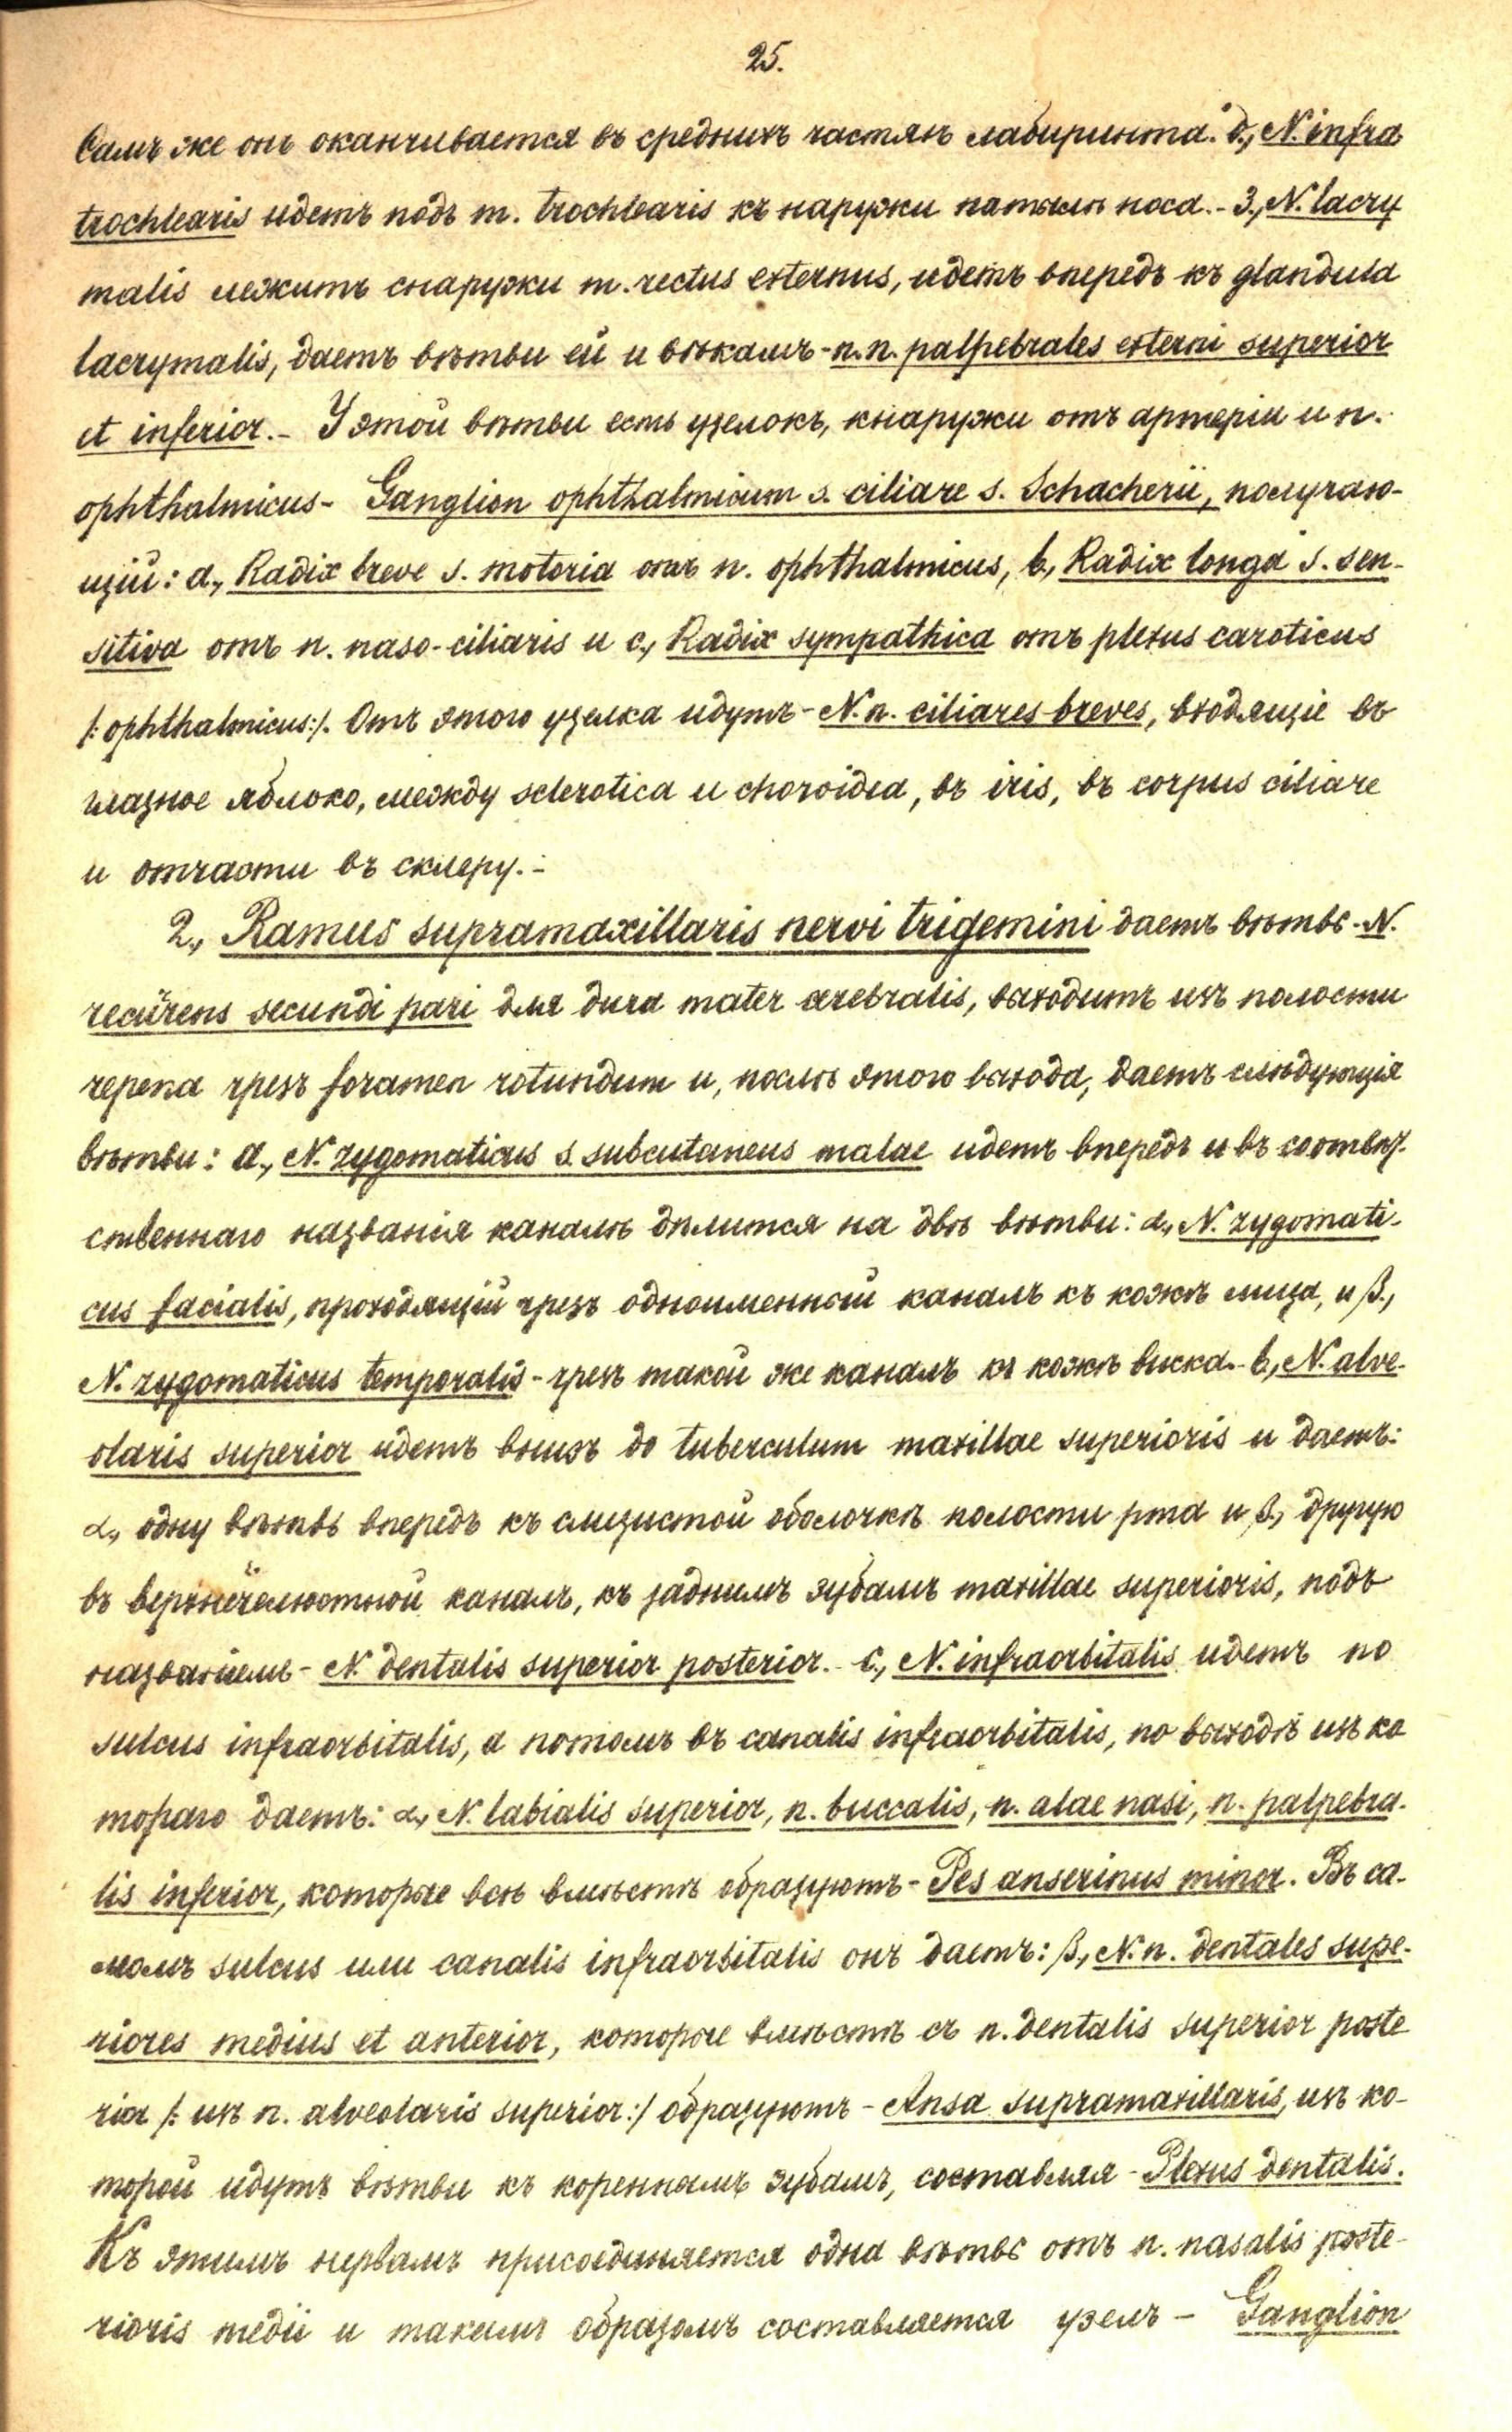 25.
Самъ же онъ оканчивается въ среднихъ частяхъ лабиринта. d., N. infra
trochlearis идетъ подъ m. trochlearis къ наружи на тылъ носа. - 3., N. lacry
malis лежитъ снаружи m. rectus externus, идетъ впередъ къ glandula
lacrymalis, даетъ вѣтви ей и вѣкамъ - n.n. palpebrales externi superior
et inferior. - У этой вѣтви есть узелокъ, кнаружи отъ артеріи и n.
ophthalmicus - Ganglion ophthalmicum s. ciliare s. Schacherii, получаю-
щій: a., Radix breve s. motoria отъ n. ophthalmicus, b., Radix longa s. sen-
sitiva отъ n. naso-ciliaris и c., Radix sympathica отъ plexus caroticus
/: ophthalmicus :/. Отъ этого узелка идутъ - N. n. ciliares breves, входящіе въ
глазное яблоко, между sclerotica и choroidea, въ iris, въ corpus ciliare
и отчасти въ склеру. -
2., Ramus supramaxillaris nervi trigemini даетъ вѣтвь - N.
recurens secundi pari для dura mater cerebralis, выходитъ изъ полости
черепа чрезъ foramen rotundum и, послѣ этого выхода, даетъ слѣдующія
вѣтви: a., N. zygomaticus s. subcutaneus malae идетъ впередъ и въ соотвѣт-
ственнаго названія каналѣ дѣлится на двѣ вѣтви: α., N. zygomati-
cus facialis, проходящій чрезъ одноименный каналъ къ кожѣ лица, и β.,
N. zygomaticus temporalis - чрезъ такой же каналъ къ кожѣ виска. - b., N. alve-
olaris superior идетъ внизъ до tuberculum maxillae superioris и даетъ:
α., одну вѣтвь впередъ къ слизистой оболочкѣ полости рта и β., другую
въ верхнечелюстной каналъ, къ заднимъ зубамъ maxillae superioris, подъ
названіемъ - N. dentalis superior posterior. - c., N. infraorbitalis идетъ по
sulcus infraorbitalis, а потомъ въ canalis infraorbitalis, по выходѣ изъ ко
тораго даетъ: α., N. labialis superior, n. buccalis, n. alae nasi, n. palpebra-
lis inferior, которые всѣ вмѣстѣ образуютъ - Pes anserinus minor. Въ са-
момъ sulcus или canalis infraorbitalis онъ даетъ: β., N. n. dentales supe-
riores medius et anterior, которые вмѣстѣ съ n. dentalis superior poste
rior /: изъ n. alveolaris superior :/ образуютъ - Ansa supramaxillaris, изъ ко-
торой идутъ вѣтви къ кореннымъ зубамъ, составляя - Plexus dentalis.
Къ этимъ нервамъ присоединяется одна вѣтвь отъ n. nasalis poste-
rioris medii и такимъ образомъ составляется узелъ - Ganglion